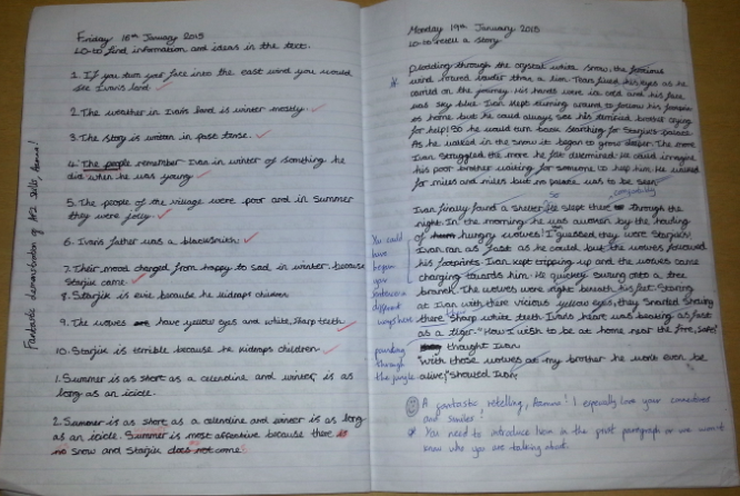 Friday 16th January 2015
LO-to find information and ideas in the text.
1. If you turn your face into the east wind you would
see Ivan's land
2. The weather in Ivan's land is winter mostly.
3. The story is written in past tense.
4. The people remember Ivan in winter of something he
did when he was young
5. The people of the village were poor and in Summer
they were jolly.
6. Ivan's father was a blacksmith.
7. Their mood changed from happy to sad in winter, because
Starjik came
8. Starjik is evil because he kidnaps children
9. The wolves have yellow eyes and white, sharp teeth
10. Starjik is terrible because he kidnaps children
1. Summer is as short as a celendine and winter, is as
long as an icicle.
2. Summer is as short as a celendine and winter is as long
as an icicle. Summer is most affentive because there is
no snow and Starjik does not come.
Fantastic demonstration of AF2 skills,
Monday 19th January 2015
LO-to retell a story.
Plodding through the crystal white snow, the ferocious
wind roared louder than a lion. Tears filled his eyes as he
carried on the journey. His hands were ice cold and his face
was sky blue. Ivan kept turning around to follow his
home but he could always see his terrified brother crying
for help! So he would turn back searching for Starjik's palace.
As he walked in the snow it began to grow deeper. The more
Ivan struggled the more he felt determined. He could imagine
his poor brother waiting for someone to help him. He walked
for miles and miles but no palace was to be seen.
comfortably
Ivan finally found a shelter. He slept there through the
night. In the morning he was awoken by the howling
of hungry wolves! I guessed they were Starjik's.
Ivan ran as fast as he could, but the wolves followed
his footprints. Ivan kept tripping up and the wolves came
charging towards him. He quickly swung onto a tree
branch. The wolves were right beneath his feet. Staring
at Ivan with there vicious yellow eyes, they snarled showing
there sharp white teeth. Ivan's heart was beating as fast
as a tiger. "How I wish to be at home near the fire, safe"
thought Ivan
"With those wolves at my brother he wont even be
alive," shouted Ivan.
You could
have
began
your
sentence a
different
way here
pounding
through
the jungle
A fantastic retelling, ! I especially love your connectives
and similes!
You need to introduce Ivan in the first paragraph or we won't
know who you are talking about.